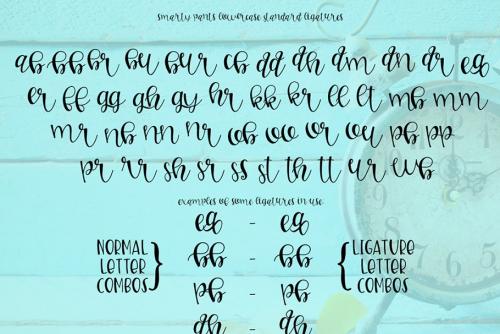 smarty pants lowercase standard ligatures
ab bb br bu bur cb dd dh dm dn dr eg
er ff gg gh gy hr kk kr ll lt mb mm
mr nb nn nr ob oo or ou pb pp
pr rr sh sr ss st th tt ur wb
examples of some ligatures in use:
eg - eg
NORMAL LETTER COMBOS } bb - bb { LIGATURE LETTER COMBOS
pb - pb
dh - dh